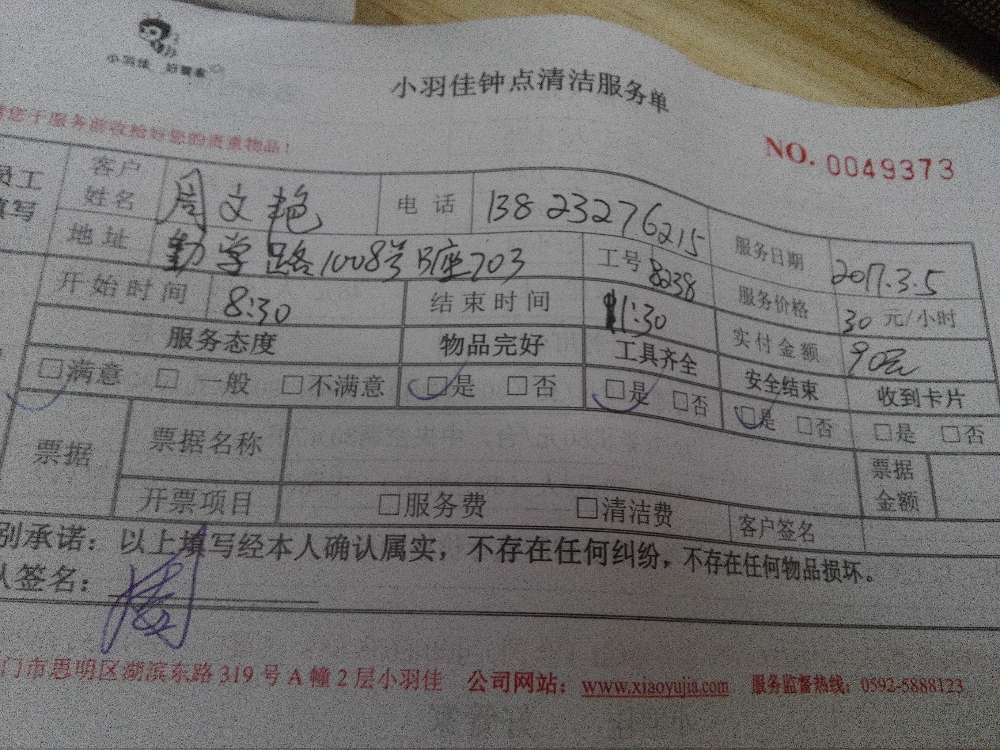 小羽佳 好管家
小羽佳钟点清洁服务单
您于服务前收拾好您的贵重物品！
NO. 0049373
员工填写
客户姓名 周文艳 电话 13823276215 服务日期 2017.3.5
地址 勤学路1008号B座703 工号 8238 服务价格 30 元/小时
开始时间 8:30 结束时间 11:30 实付金额 90元
服务态度 物品完好 工具齐全 安全结束 收到卡片
□满意 □一般 □不满意 □是 □否 □是 □否 □是 □否 □是 □否
票据 票据名称 票据金额
开票项目 □服务费 □清洁费 客户签名
别承诺：以上填写经本人确认属实，不存在任何纠纷，不存在任何物品损坏。
人签名：周
门市思明区湖滨东路 319 号 A 幢 2 层小羽佳 公司网站：www.xiaoyujia.com 服务监督热线：0592-5888123